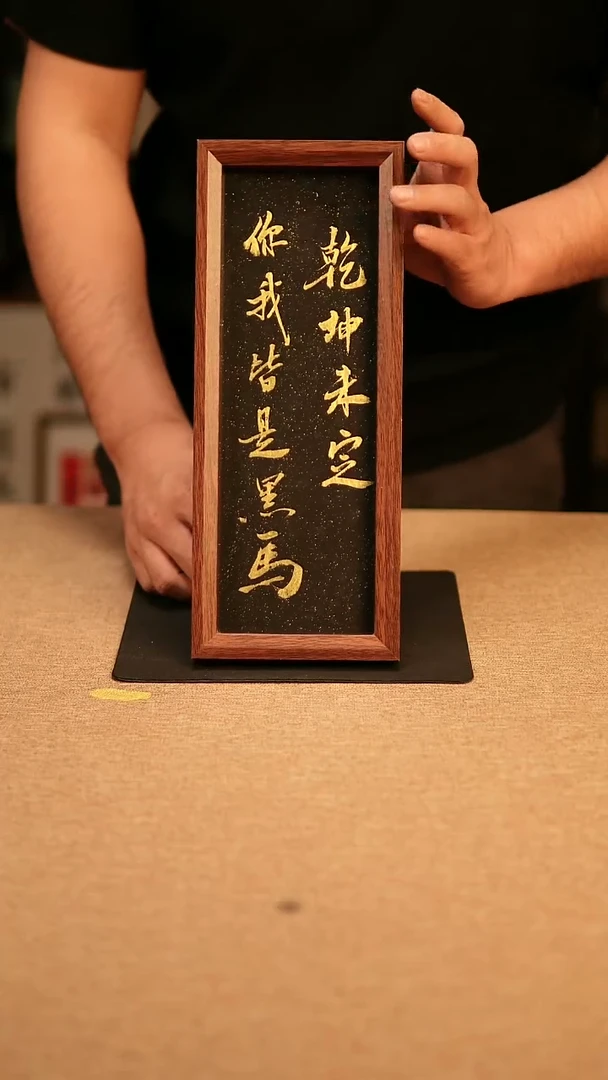 乾坤未定
你我皆是黑馬